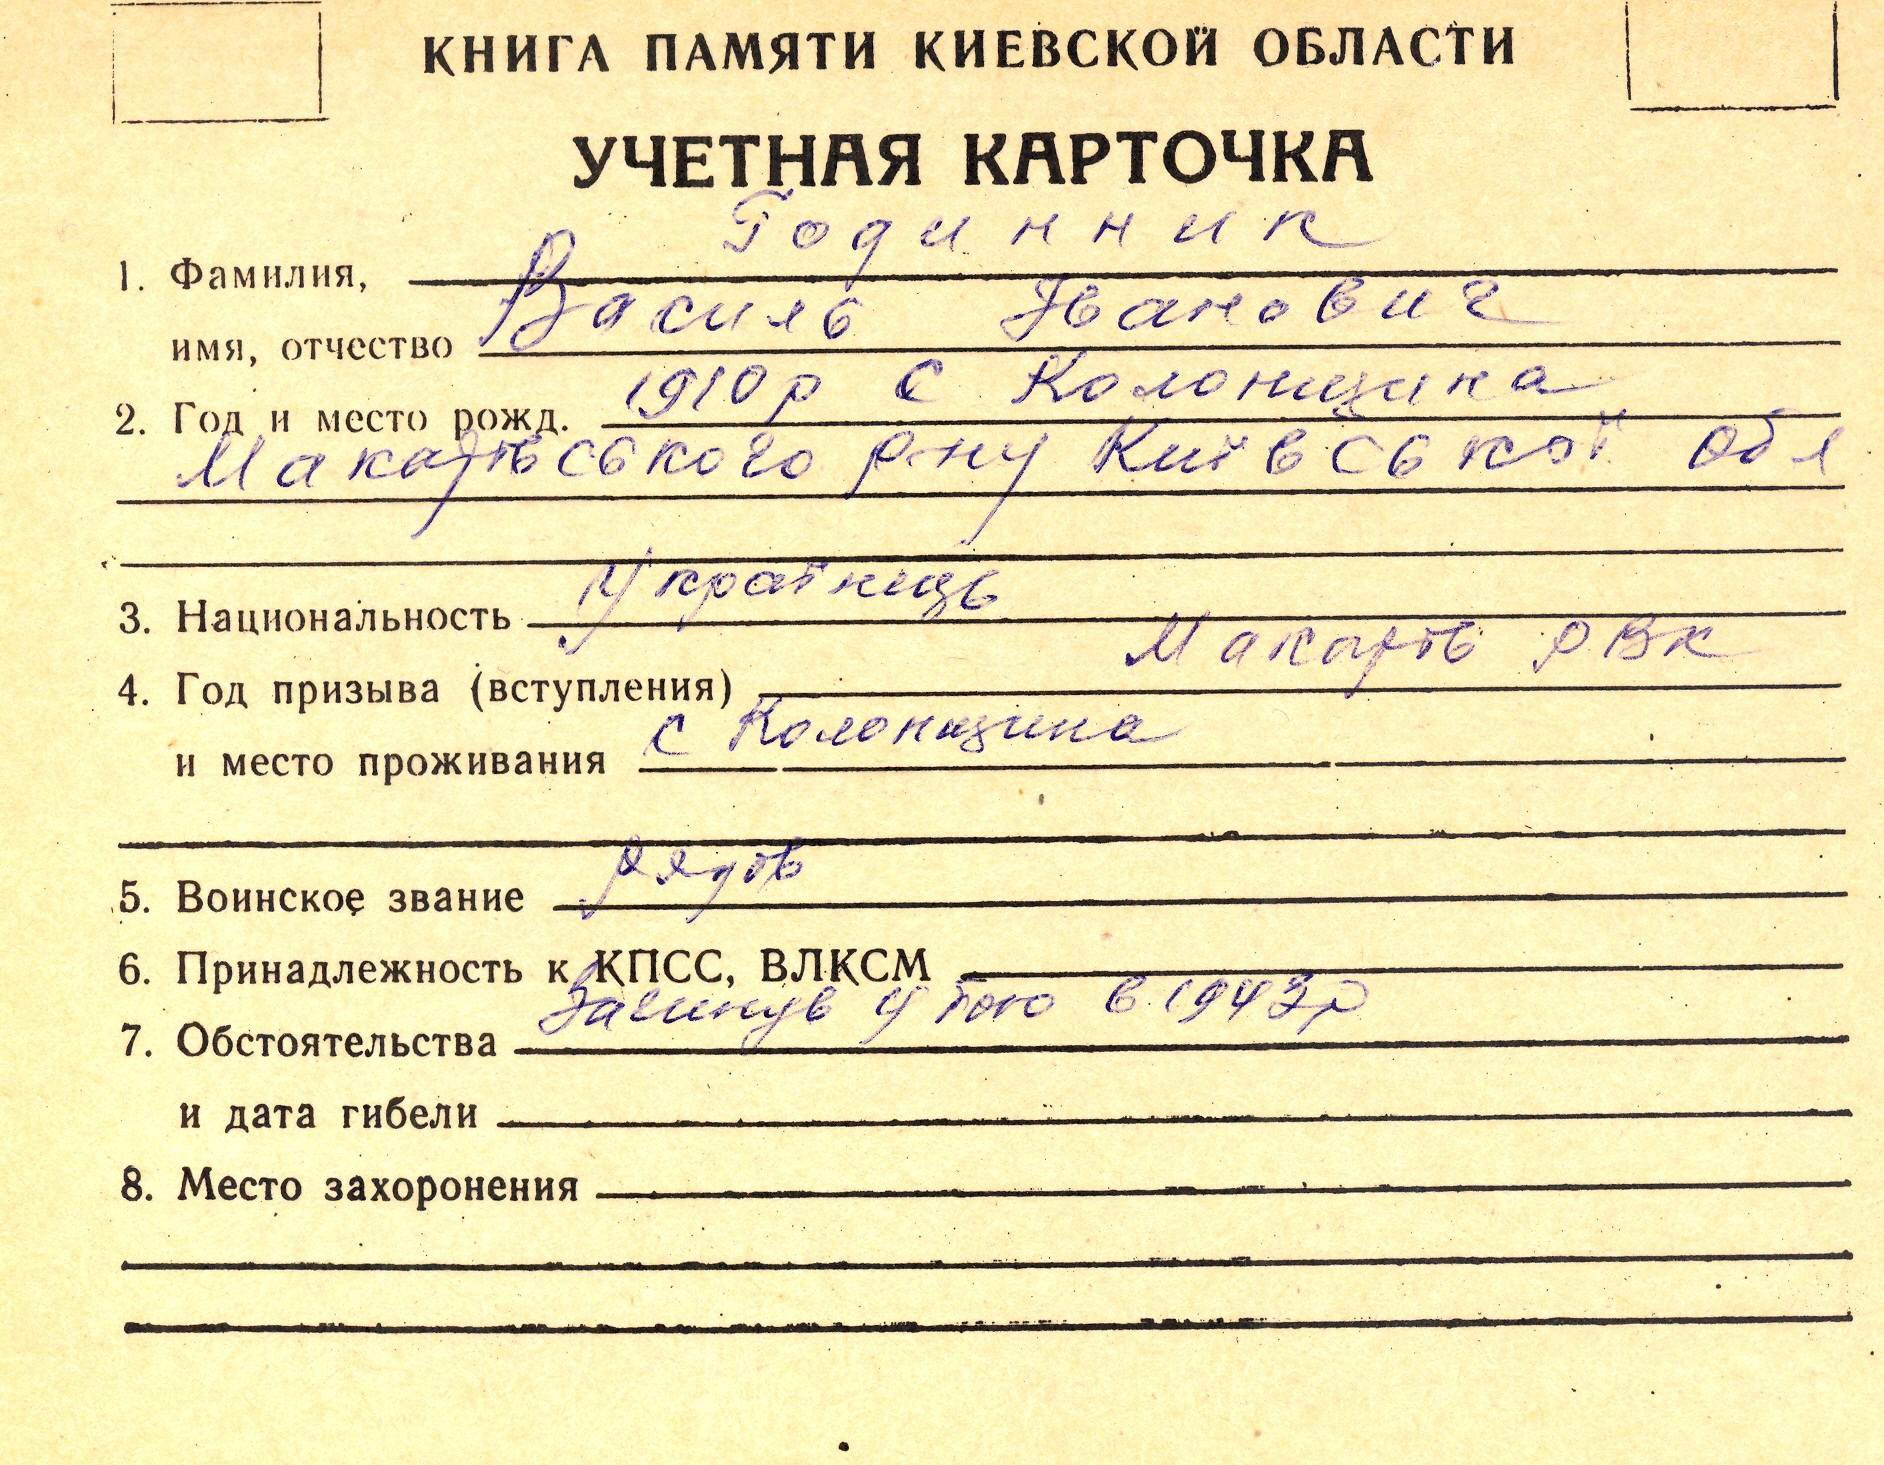 КНИГА ПАМЯТИ КИЕВСКОЙ ОБЛАСТИ
УЧЕТНАЯ КАРТОЧКА
1. Фамилия, Годинник
имя, отчество Василь Іванович
2. Год и место рожд. 1910 р с Колонщина
Макарівського р-ну Київської обл
3. Национальность Українець
4. Год призыва (вступления) Макарів РВК
и место проживания с Колонщина
5. Воинское звание рядов
6. Принадлежность к КПСС, ВЛКСМ
7. Обстоятельства Загинув у бою в 1943 р
и дата гибели
8. Место захоронения